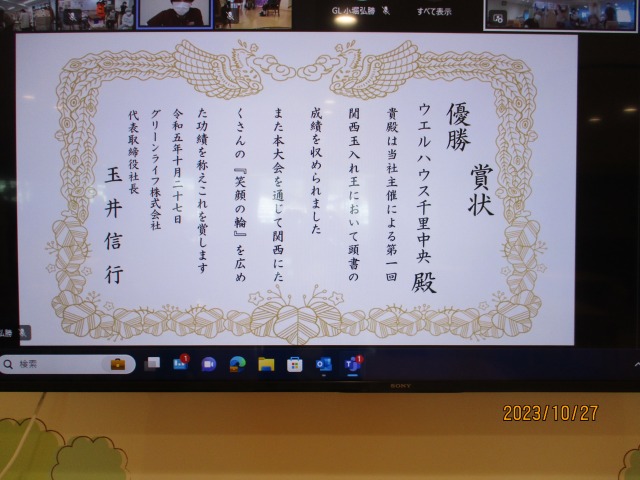 GL小堀弘勝
すべて表示
優勝
賞状
ウエルハウス千里中央 殿
貴殿は当社主催による第一回
関西玉入れ王において頭書の
成績を収められました
また本大会を通じて関西にた
くさんの『笑顔の輪』を広め
た功績を称えこれを賞します
令和五年十月二十七日
グリーンライフ株式会社
代表取締役社長
玉井信行
弘勝
検索
SONY
2023/10/27